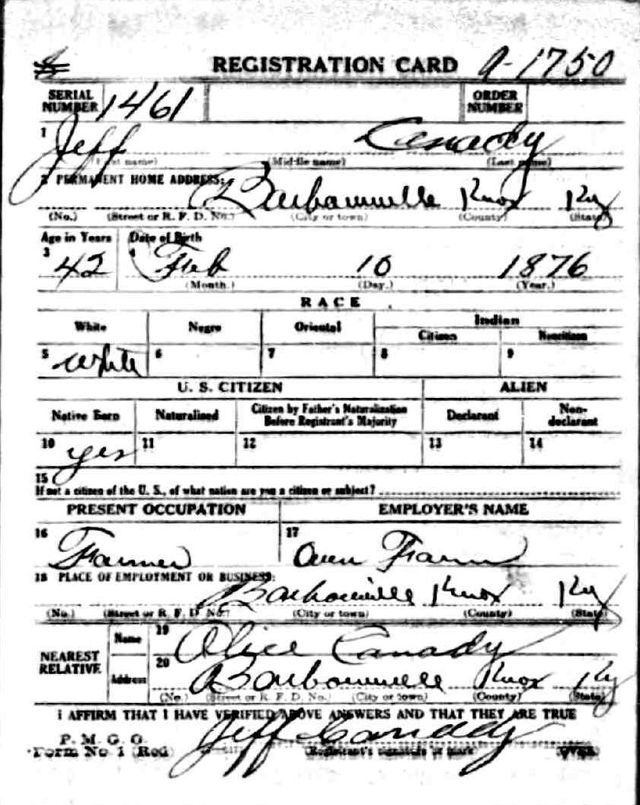 REGISTRATION CARD 9-1750
SERIAL NUMBER 1461 ORDER NUMBER
1 Jeff Canady
(First name) (Middle name) (Last name)
2 PERMANENT HOME ADDRESS:
Barbourville Knox Ky
(No.) (Street or R. F. D. No.) (City or town) (County) (State)
Age in Years Date of Birth
3 42 4 Feb 10 1876
(Month.) (Day.) (Year.)
RACE
White Negro Oriental Indian
Citizen Noncitizen
5 White 6 7 8 9
U. S. CITIZEN ALIEN
Native Born Naturalized Citizen by Father's Naturalization Before Registrant's Majority Declarant Non-declarant
10 yes 11 12 13 14
15
If not a citizen of the U. S., of what nation are you a citizen or subject?
PRESENT OCCUPATION EMPLOYER'S NAME
16 Farmer 17 Own Farm
18 PLACE OF EMPLOYMENT OR BUSINESS:
Barbourville Knox Ky
(No.) (Street or R. F. D. No.) (City or town) (County) (State)
NEAREST RELATIVE Name 19 Alice Canady
Address 20 Barbourville Knox Ky
(No.) (Street or R. F. D. No.) (City or town) (County) (State)
I AFFIRM THAT I HAVE VERIFIED ABOVE ANSWERS AND THAT THEY ARE TRUE
P. M. G. O.
Form No. 1 (Red) Jeff Canady
(Registrant's signature or mark) OVER